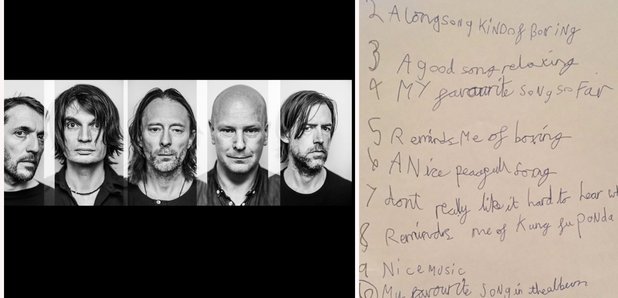 2 A long song kind of boring
3 A good song relaxing
4 MY favourite song so far
5 Reminds Me of boxing
6 A Nice peacgull song
7 dont really like it hard to hear
8 Reminds me of Kung fu panda
9 Nice music
10 My favourite song in the album